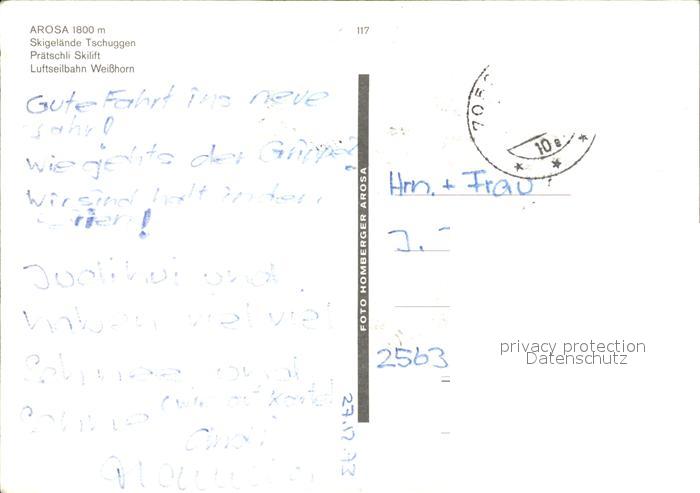 AROSA 1800 m
Skigelände Tschuggen
Prätschli Skilift
Luftseilbahn Weißhorn
117
Gute Fahrt ins neue
Jahr!
wie gehts der Grippe?
Wir sind halt in den
Ferien!
und
haben viel viel
Schnee und
Sonne
27.12.73
FOTO HOMBERGER AROSA
Hrn. + Frau
J.
2563
privacy protection
Datenschutz